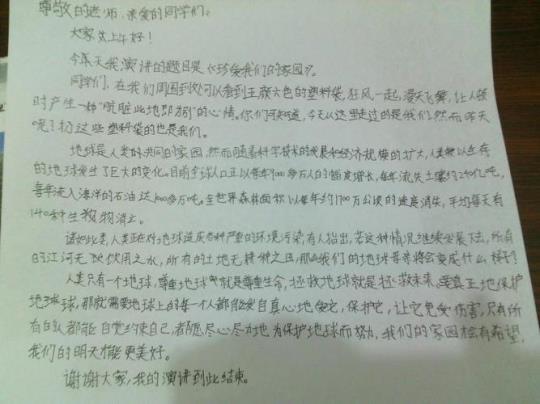 尊敬的老师、亲爱的同学们:
大家上午好!
今天我演讲的题目是《珍爱我们的家园》。
同学们,在我们周围到处可以看到五颜六色的塑料袋,狂风一起,漫天飞舞,让人顿
时产生一种"肮脏此地即为"的心情。你们可知道,今天从这里走过的是我们,然而昨天
呢?扔这些塑料袋的也是我们。
地球是人类的共同的家园,然而随着科学技术的发展和经济规模的扩大,人类赖以生存
的地球发生了巨大的变化。目前全球人口正以每年900多万人的幅度增长,每年流失土壤约240亿吨,
每年流入海洋的石油达1000多万吨。全世界森林面积以每年约1700万公顷的速度消失,平均每天有
140种生物消亡。
诸如此类,人类正在对地球造成各种严重的环境污染,有人指出,若这种情况继续发展下去,所有
的江河无可饮用之水,所有的土地无耕种之田,那么我们的地球等着将会变成什么样子?
人类只有一个地球,尊重地球就是尊重生命,拯救地球就是拯救未来,要真正地保护
地球,那就需要地球上的每一个人都能发自真心地爱它,保护它,让它免受伤害,只有所
有的人都能自觉约束自己,都愿尽心尽力地为保护地球而努力,我们的家园才会有希望,
我们的明天才能更美好。
谢谢大家,我的演讲到此结束。